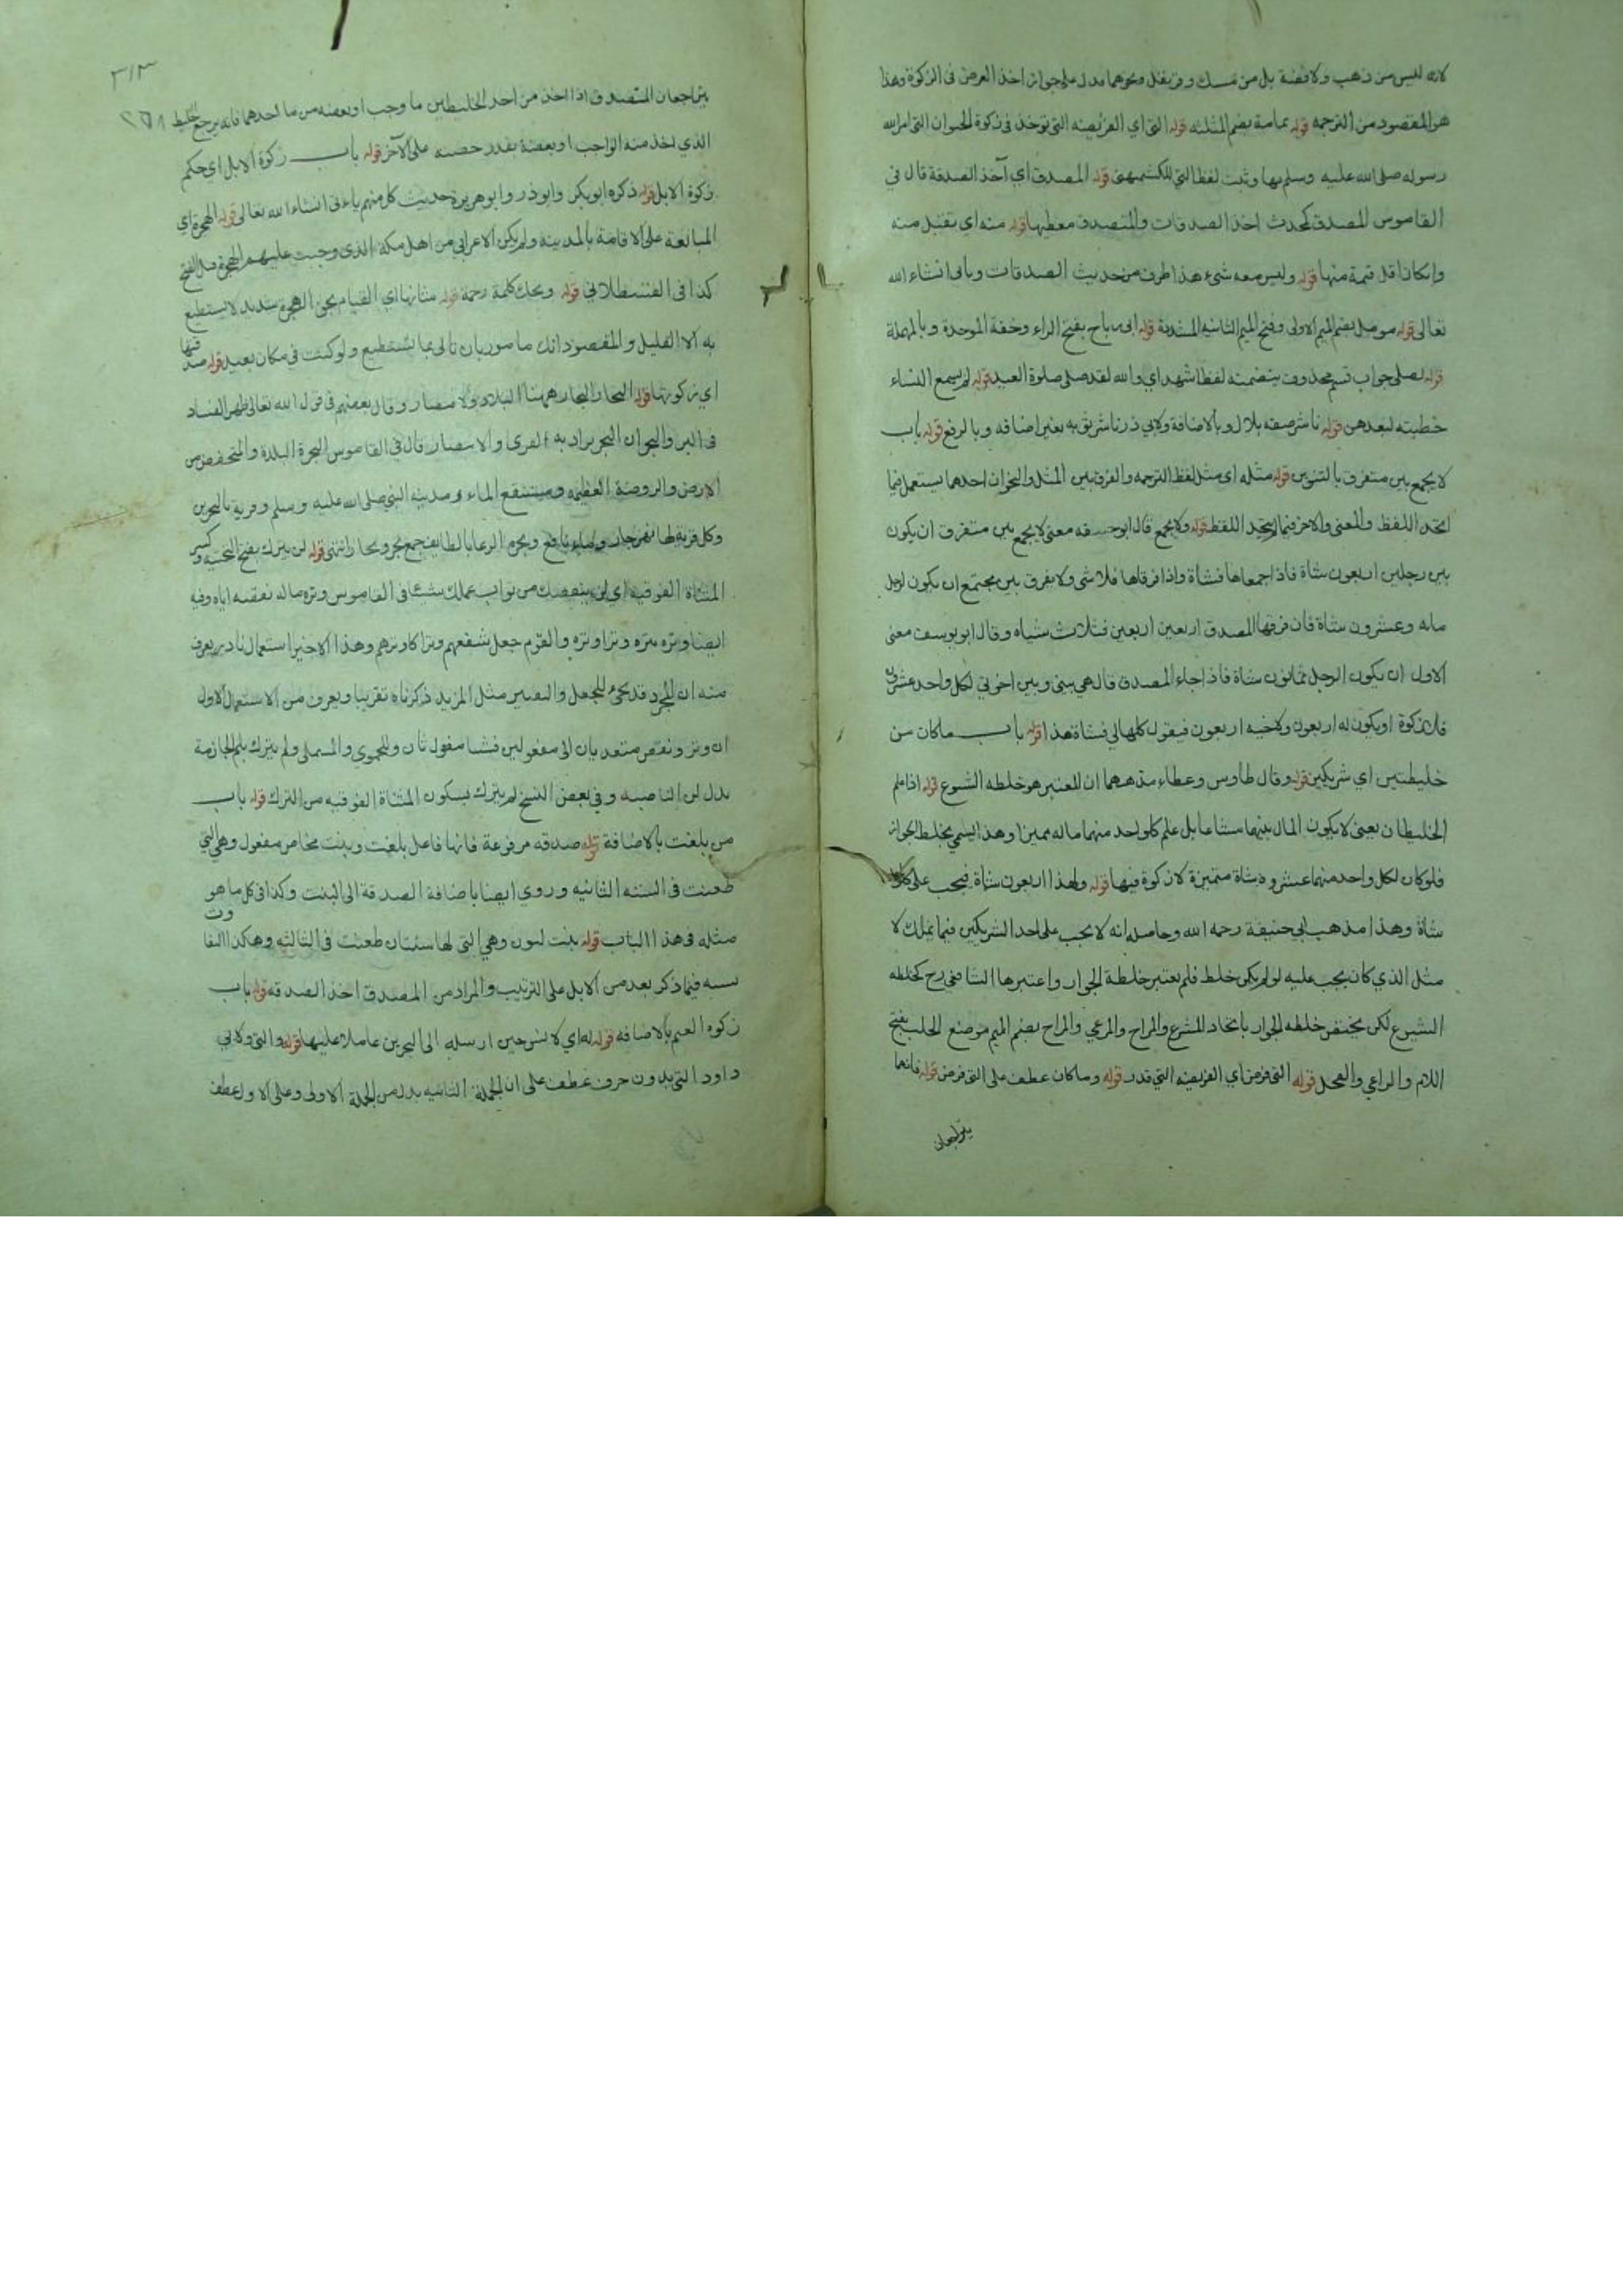 لانه ليس من ذهب ولا فضة بل من مسك وقرنفل ونحوهما يدل على جواز اخذ العرض فى الزكوة وهذا
هو المقصود من الترجمه قوله ثمامة بضم المثلثه قوله التى اي الفريضه التى تؤخذ فى زكوة الحيوان التى امر الله
رسوله صلى الله عليه وسلم بها وثبت لفظ التى للكشميهنى قوله المصدق اي آخذ الصدقة قال في
القاموس المصدق كمحدث اخذ الصدقات والمتصدق معطيها قوله منه اي يقبل منه
وان كان اقل قيمة منها قوله وليس معه شئ هذا طرف من حديث الصدقات وياتى انشاء الله
تعالى قوله مومل بضم الميم الاولى وفتح الميم الثانيه المشددة قوله ابى رباح بفتح الراء وخفة الموحدة وبالمهملة
قوله لصلى جواب قسم محذوف يتضمنه لفظ اشهد اي والله لقد صلى صلوة العيد قوله لم يسمع النساء
خطبته لبعدهن قوله ناشر صفه بلال وبالاضافة ولابي ذر ناشر ثوبه بغير اضافه وبالرفع قوله باب
لا يجمع بين متفرق بالتنوين قوله مثله اى مثل لفظ الترجمه والفرق بين المثل والنحو ان احدهما يستعمل فيما
اتحد اللفظ والمعنى والاخر فيما لم يتحد اللفظ قوله ولا يجمع قال ابو حنيفه معنى لا يجمع بين متفرق ان يكون
بين رجلين اربعون شاة فاذا جمعاها فشاة واذا فرقاها فلا شى ولا يفرق بين مجتمع ان يكون لرجل
مايه وعشرون شاة فان فرقها المصدق اربعين اربعين فثلاث شياه وقال ابو يوسف معنى
الاول ان يكون الرجل ثمانون شاة فاذا جاء المصدق قال هي بينى وبين اخوتي لكل واحد عشرون
فلا زكوة او يكون له اربعون ولاخيه اربعون فيقول كلها لي فشاة هذا قوله باب ما كان من
خليطين اي شريكين قوله وقال طاوس وعطاء مذهبهما ان المعتبر هو خلطه الشيوع قوله اذا علم
الخليطان يعنى لا يكون المال بينهما مشاعا بل علم كل واحد منهما ماله مميزا وهذا يسمي بخلط الجوار
فلو كان لكل واحد منهما عشرون شاة متميزة لا زكوة فيها قوله ولهذا اربعون شاة فيجب على كل
شاة وهذا مذهب ابي حنيفة رحمه الله وحاصله انه لا يجب على احد الشريكين فيما يملك الا
مثل الذي كان يجب عليه لو لم يكن خلط فلم يعتبر خلطة الجوار واعتبرها الشافعى رح كخلطه
الشيوع لكن يختص خلطه الجوار باتحاد المشرع والمراح والمرعي والمراح بضم الميم موضع الحلب بفتح
اللام والراعي والفحل قوله التى فرض اي الفريضه التي قدر قوله وما كان عطف على التى فرض قوله فانهما
يتراجعان
٣١٣
يتراجعان المتصدق اذا اخذ من احد الخليطين ما وجب او بعضه من مال احدهما فانه يرجع الخليط
الذي اخذ منه الواجب او بعضه بقدر حصته على الآخر قوله باب زكوة الابل اي حكم
زكوة الابل قوله ذكره ابو بكر وابو ذر وابو هريرة حديث كل منهم ياتى انشاء الله تعالى قوله الهجرة اي
المبالغة على الاقامة بالمدينه ولم يكن الاعرابى من اهل مكة الذى وجبت عليهم الهجرة قبل الفتح
كذا فى القسطلاني قوله ويحك كلمة رحمة قوله شانها اي القيام بحق الهجرة شديد لا يستطيع
به الا القليل والمقصود انك ما مور بان تاتى بما تستطيع ولو كنت فى مكان بعيد قوله صدقتها
اي زكوتها قوله البحار البحار ههنا البلاد والامصار وقال بعضهم فى قول الله تعالى ظهر الفساد
فى البر والبحر ان البحر يراد به القرى والامصار قال في القاموس البحرة البلدة والمنخفض من
الارض والروضة العظيمه ومستنقع الماء ومدينه النبي صلى الله عليه وسلم وقرية بالبحرين
وكل قرية لها نهر جار وماء ناقع وبحرة الرغا بالطايف جمع بحر وبحار انتهى قوله لن يترك بفتح التحتيه وكسر
المثناة الفوقيه اي لن ينقصك من ثواب عملك شيئا فى القاموس وتره ماله نقصه اياه وفيه
ايضا وتره يتره وترا وتره والقوم جعل شفعهم وترا كاوترهم وهذا الاخير استعمال نادر يعرف
منه ان المجرد قد يجئ للجعل والتصيير مثل المزيد ذكرناه تقريبا ويعرف من الاستعمال الاول
ان وتر ونقص متعديان الى مفعولين فشيا مفعول ثان وللحموي والمستملى ولم يترك بلم الجازمة
بدل لن الناصبه وفي بعض النسخ لم يترك بسكون المثناة الفوقيه من الترك قوله باب
من بلغت بالاضافة قوله صدقه مرفوعة فانها فاعل بلغت وبنت مخاض مفعول وهي التي
طعنت فى السنه الثانيه وروي ايضا باضافة الصدقة الى البنت وكذا فى كل ما هو
مثله فى هذا الباب قوله بنت لبون وهي التى لها سنتان طعنت فى الثالثه وهكذا التفاوت
بسنه فيما ذكر بعد من الابل على الترتيب والمراد من المصدق اخذ الصدقه قوله باب
زكوه الغنم بالاضافه قوله له اي لانس حين ارسله الى البحرين عاملا عليها قوله والتي ولابي
داود التي بدون حرف عطف على ان الجملة الثانيه بدل من الجملة الاولى وعلى الاول عطف